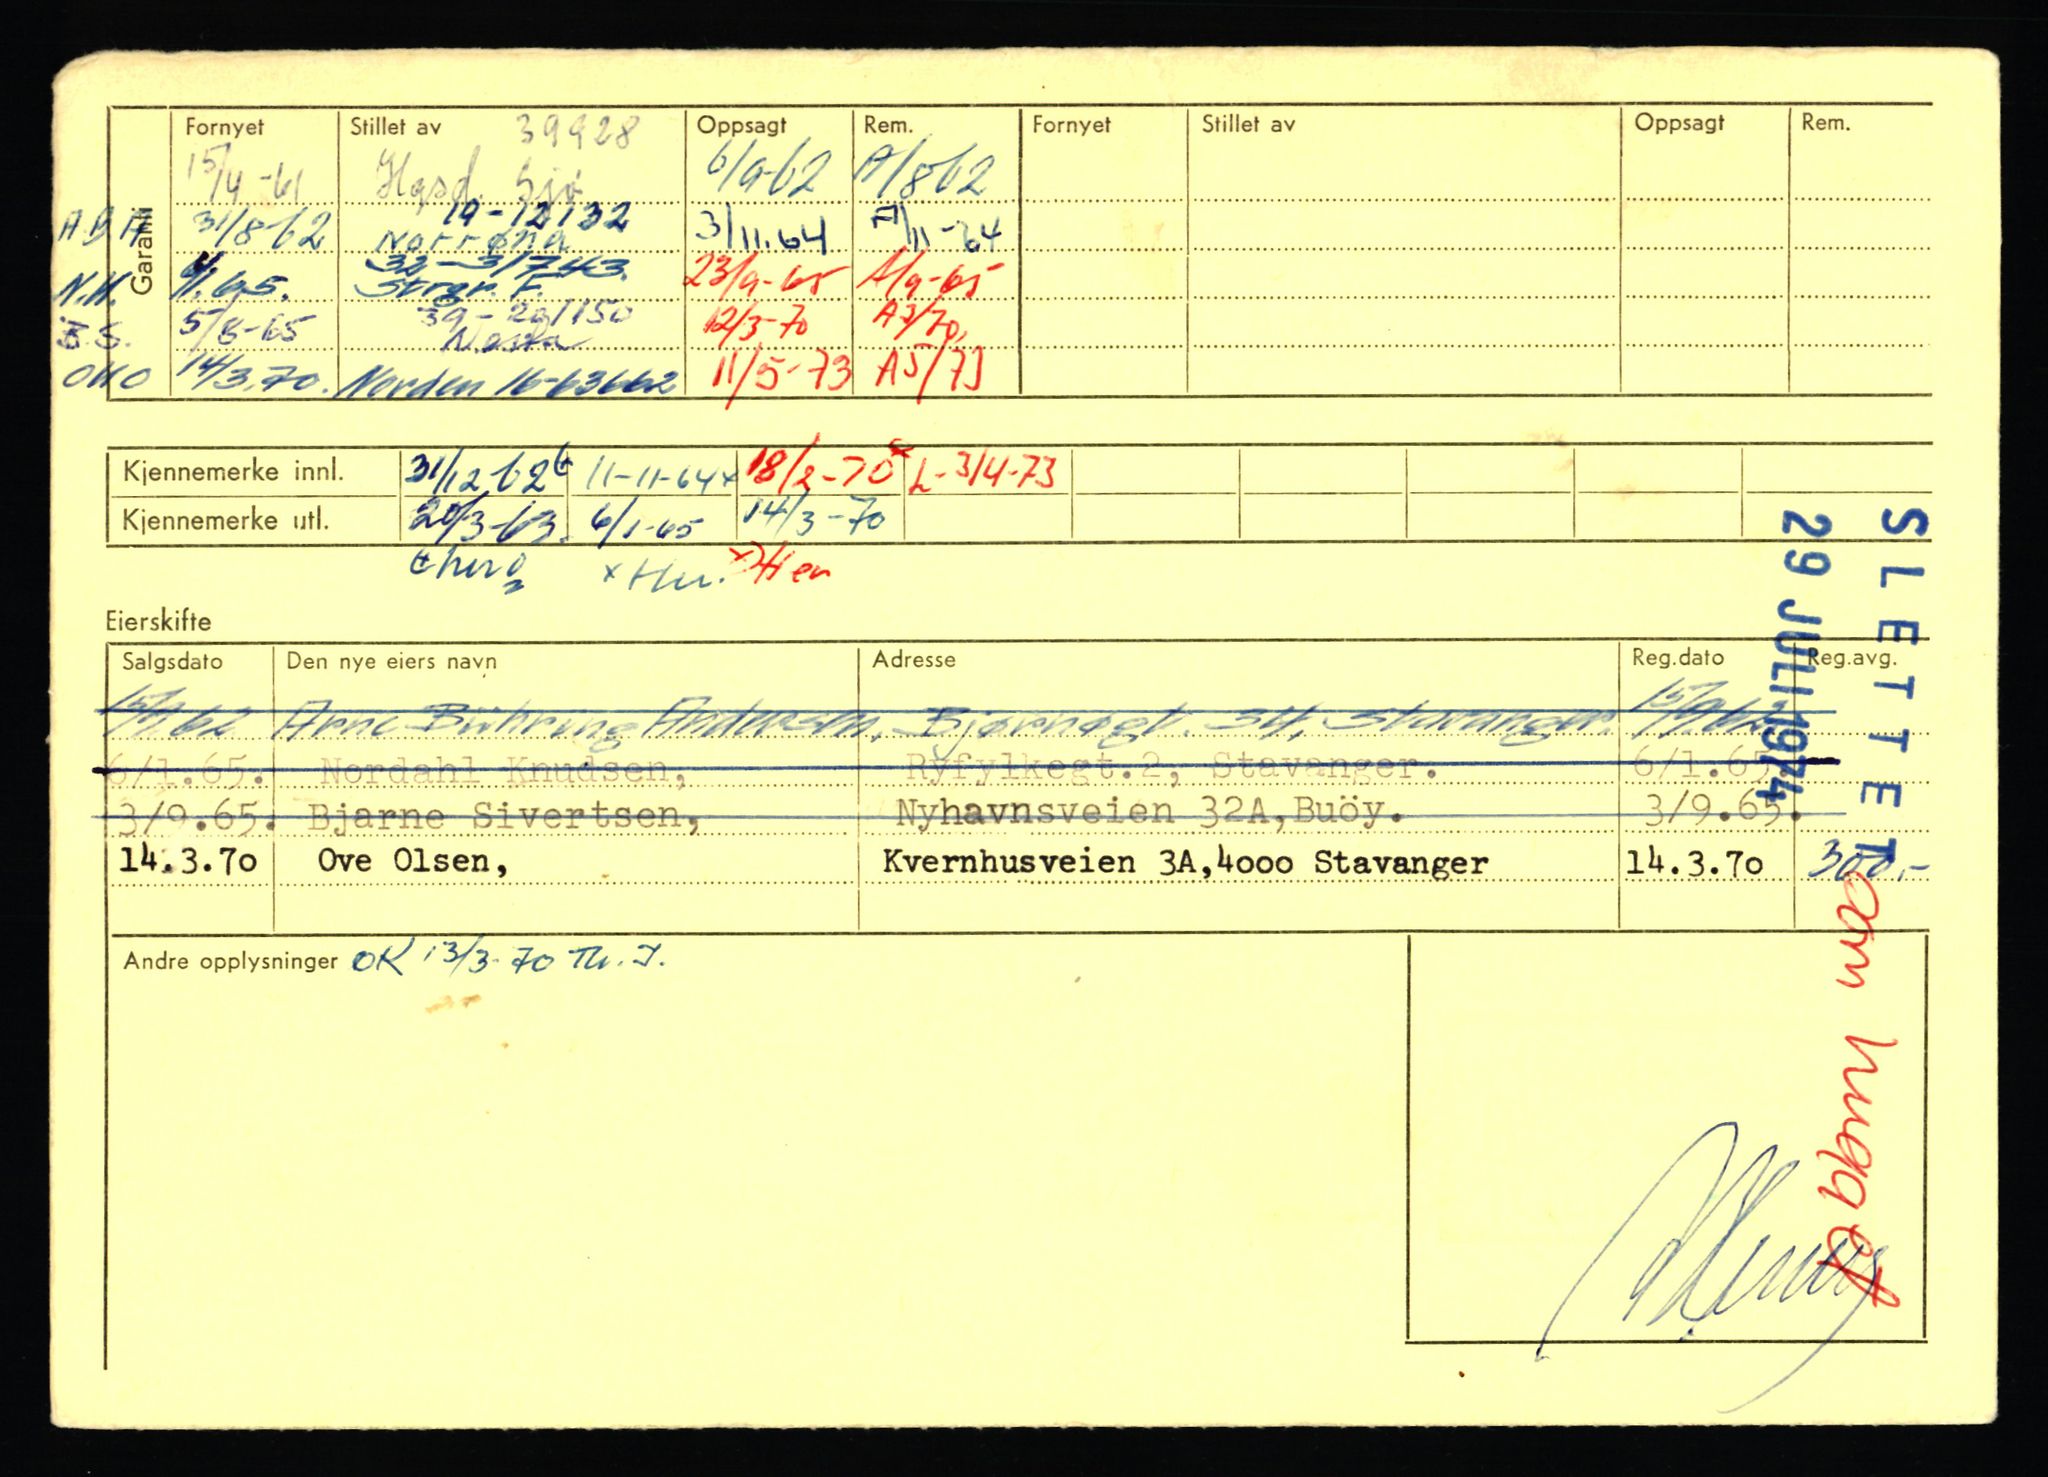 Garanti Fornyet Stillet av 39928 Oppsagt Rem. Fornyet Stillet av Oppsagt Rem.
15/4-61 Hgsd. Sjø 6/9-62 A/8 62
A.B.A 31/8-62 19-12132 Norrøna 3/11.64 A/11-64
N.K. 6/1.65. 32-31743. Strgr. F. 23/9-65 A/9-65
B.S. 5/8-65 39-201150 Norsta 12/3-70 A3/70.
OHO 14/3.70. Norden 16-63662 11/5-73 A5/73
Kjennemerke innl. 31/12 62 11-11-64x 18/2-70x L-3/4-73
Kjennemerke utl. 20/3-63. 6/1-65 14/3-70
x Her. x Her
Eierskifte
Salgsdato Den nye eiers navn Adresse Reg.dato Reg.avg.
15/9/62 Arne Bühring Andersen, Bjørnøgt. 34, Stavanger. 15/9.62
6/1.65. Nordahl Knudsen, Ryfylkegt.2, Stavanger. 6/1.65.
3/9.65. Bjarne Sivertsen, Nyhavnsveien 32A,Buöy. 3/9.65.
14.3.70 Ove Olsen, Kvernhusveien 3A,4000 Stavanger 14.3.70 300,-
Andre opplysninger OK 13/3-70 Th. J.
SLETTET
29 JULI 1974
som hugget